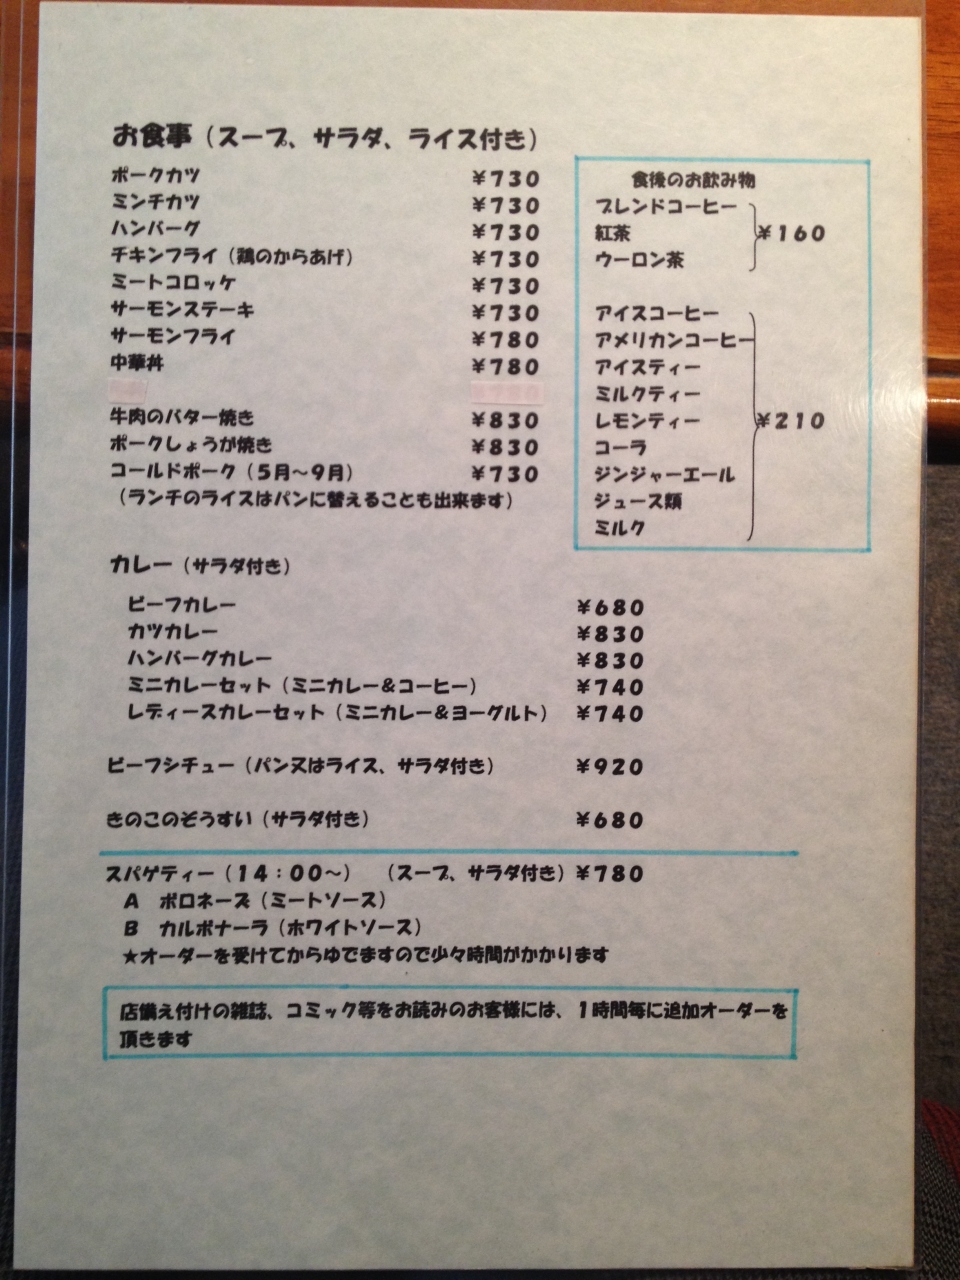 お食事（スープ、サラダ、ライス付き）
ポークカツ ￥７３０
ミンチカツ ￥７３０
ハンバーグ ￥７３０
チキンフライ（鶏のからあげ） ￥７３０
ミートコロッケ ￥７３０
サーモンステーキ ￥７３０
サーモンフライ ￥７８０
中華丼 ￥７８０
牛肉のバター焼き ￥８３０
ポークしょうが焼き ￥８３０
コールドポーク（５月～９月） ￥７３０
（ランチのライスはパンに替えることも出来ます）
食後のお飲み物
ブレンドコーヒー
紅茶 ￥１６０
ウーロン茶
アイスコーヒー
アメリカンコーヒー
アイスティー
ミルクティー
レモンティー ￥２１０
コーラ
ジンジャーエール
ジュース類
ミルク
カレー（サラダ付き）
ビーフカレー ￥６８０
カツカレー ￥８３０
ハンバーグカレー ￥８３０
ミニカレーセット（ミニカレー＆コーヒー） ￥７４０
レディースカレーセット（ミニカレー＆ヨーグルト） ￥７４０
ビーフシチュー（パン又はライス、サラダ付き） ￥９２０
きのこのぞうすい（サラダ付き） ￥６８０
スパゲティー（１４：００～） （スープ、サラダ付き）￥７８０
Ａ ボロネーズ（ミートソース）
Ｂ カルボナーラ（ホワイトソース）
★オーダーを受けてからゆでますので少々時間がかかります
店備え付けの雑誌、コミック等をお読みのお客様には、１時間毎に追加オーダーを
頂きます